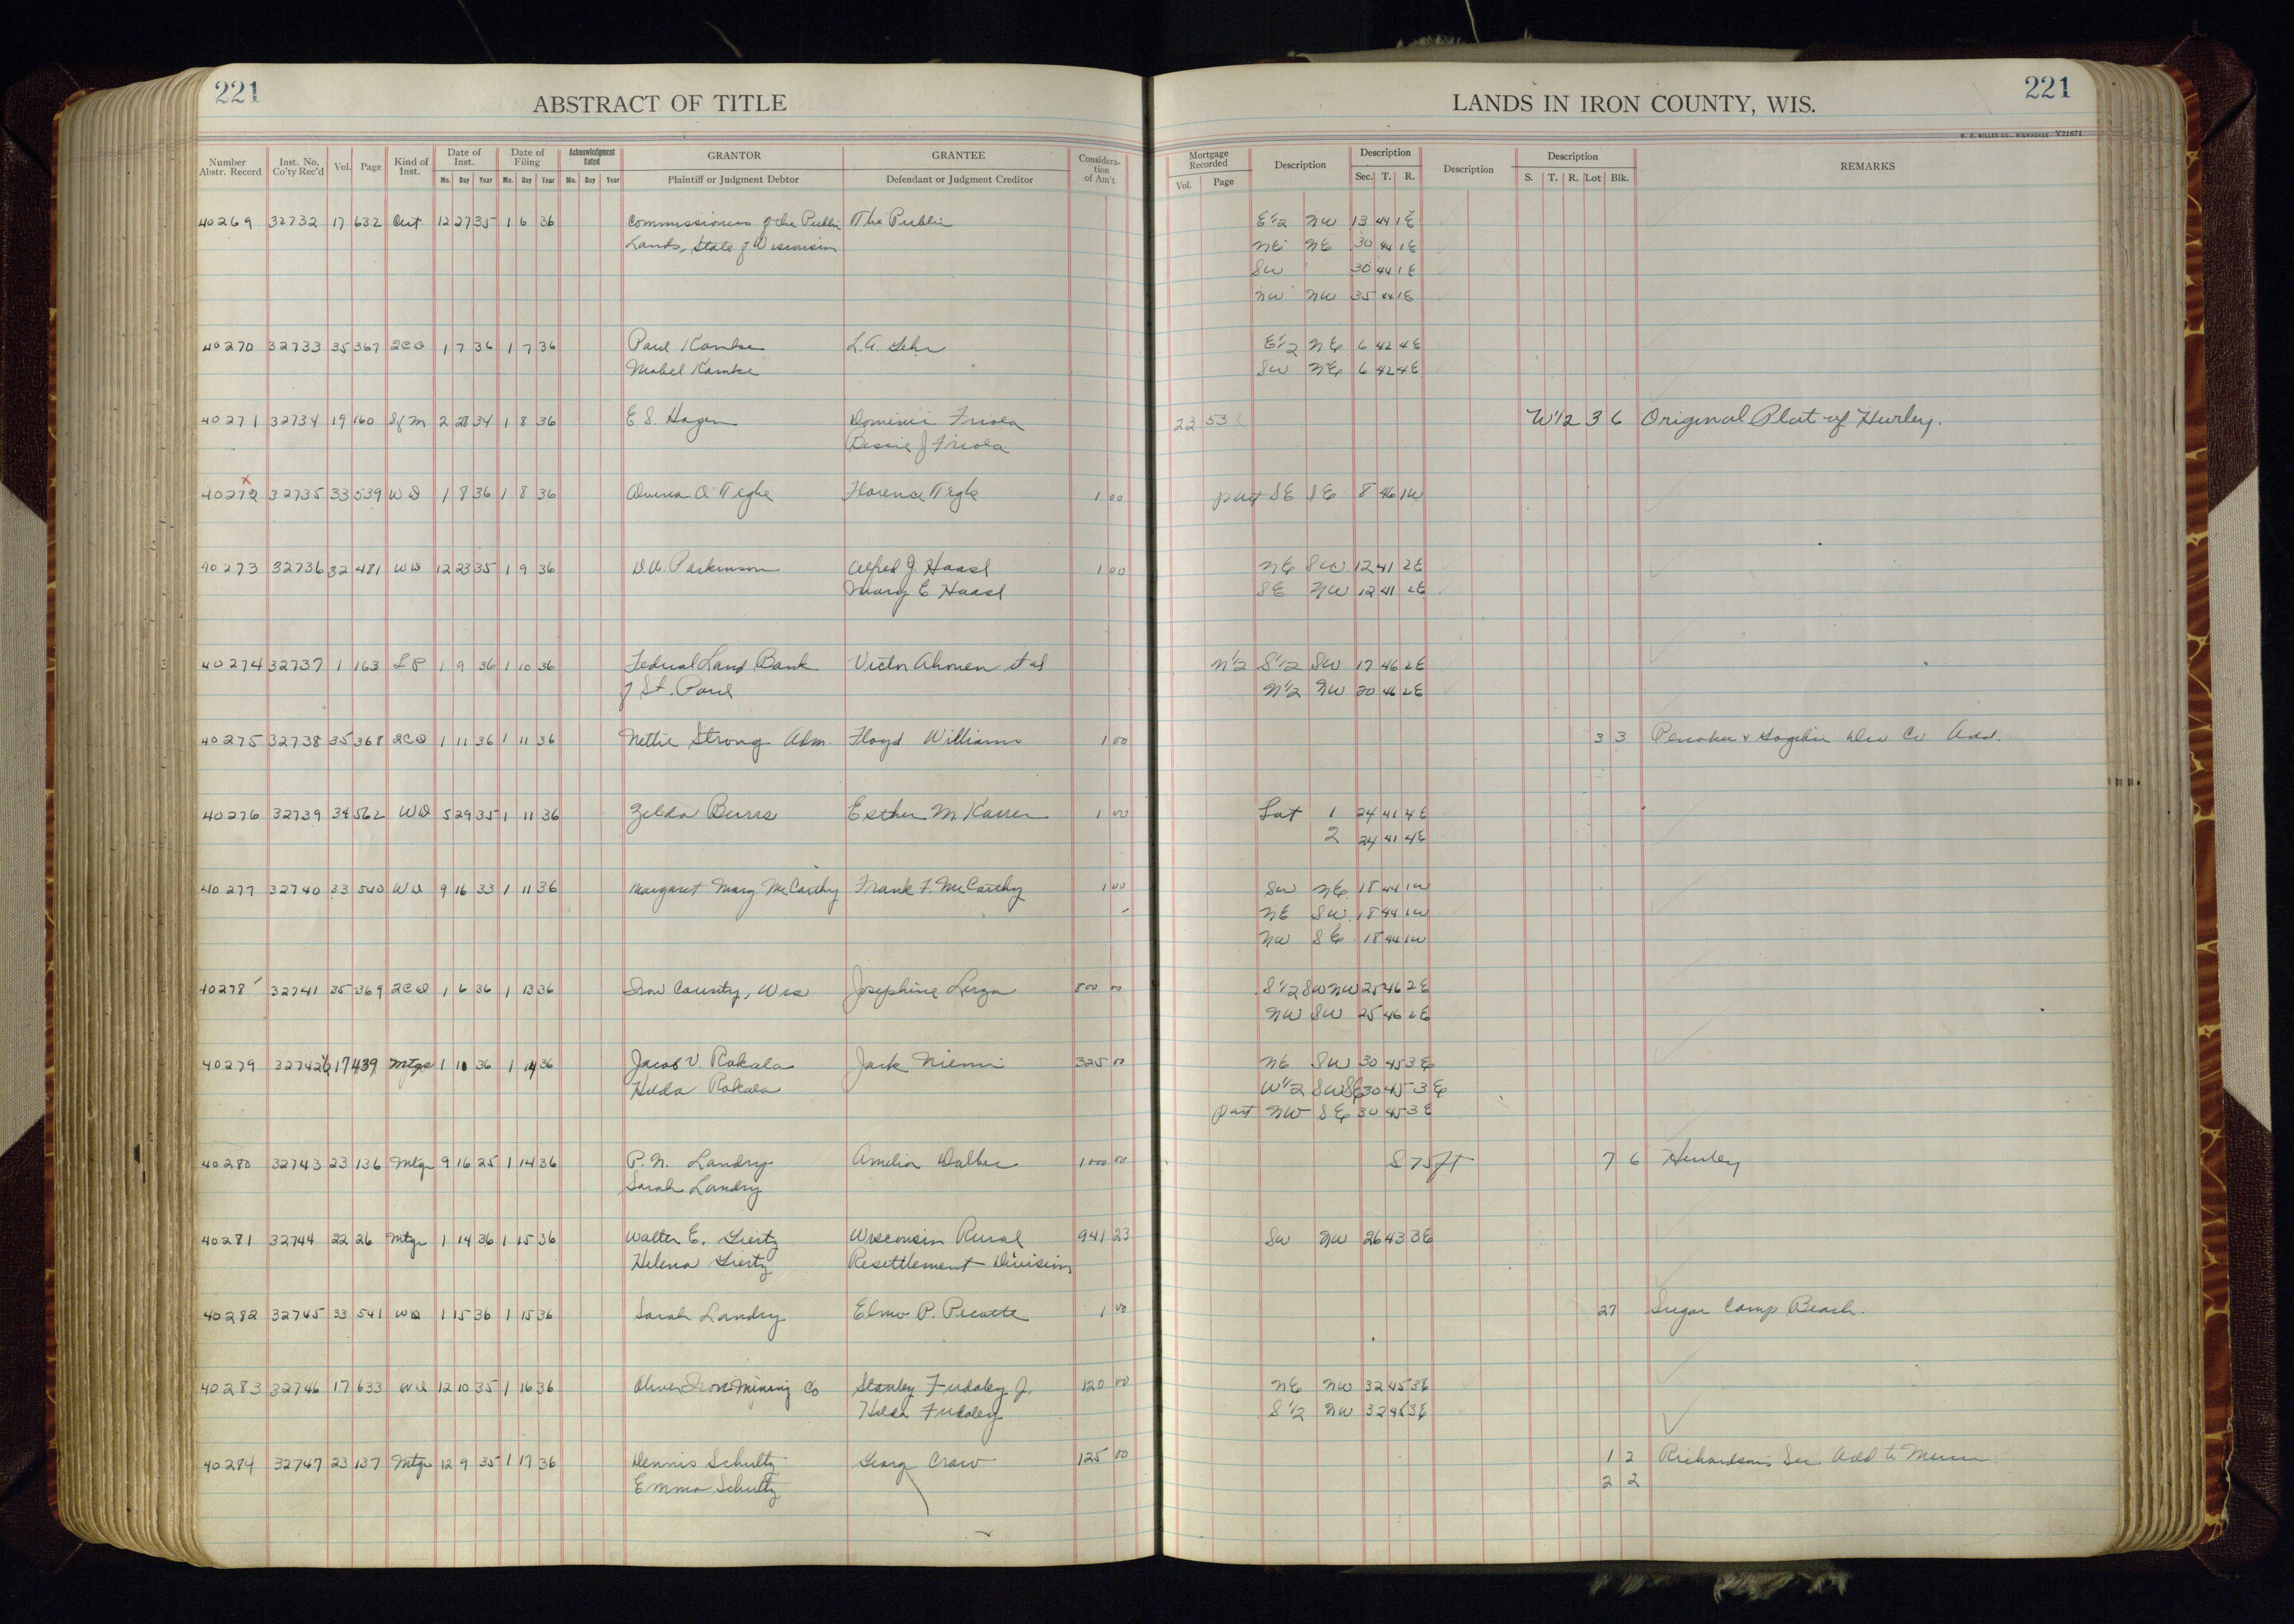 221
ABSTRACT OF TITLE
LANDS IN IRON COUNTY, WIS.
221
H. C. MILLER CO., MILWAUKEE Y21671
Number Abstr. Record | Inst. No. Co'ty Rec'd | Vol. | Page | Kind of Inst. | Date of Inst. | Date of Filing | Acknowledgment Dated | GRANTOR | GRANTEE | Consideration of Am't | Mortgage Recorded | Description | Description | Description | Description | REMARKS
Mo. Day Year | Mo. Day Year | Mo. Day Year | Plaintiff or Judgment Debtor | Defendant or Judgment Creditor | Vol. Page | Sec. T. R. | S. T. R. Lot Blk.
40269 32732 17 632 Cert 12 27 35 1 6 36 Commissioners of the Public The Public E1/2 NW 13 44 1E
Lands, State of Wisconsin NE NE 30 44 1E
SW 30 44 1E
NW NW 35 44 1E
40270 32733 35 367 2CD 1 7 36 1 7 36 Paul Kamke L.A. E1/2 NE 6 42 4E
Mabel Kamke SW NE 6 42 4E
40271 32734 19 160 SfM 2 28 34 1 8 36 E S. Hagen Friola 22 53 W1/2 3 6 Original Plat of Hurley.
Bessie J Friola
40272 32735 33 539 WD 1 8 36 1 8 36 Florence 1 00 part SE SE 8 46 1W
40273 32736 32 481 WD 12 23 35 1 9 36 D.A. Parkinson Alfred J. Haasl 1 00 NE SW 12 41 2E
Mary E Haasl SE NW 12 41 2E
40274 32737 1 163 LP 1 9 36 1 10 36 Federal Land Bank Victor Ahonen et al N1/2 S1/2 SW 17 46 2E
of St. Paul N1/2 NW 20 46 2E
40275 32738 35 368 2CD 1 11 36 1 11 36 Nettie Strong Adm. Floyd Williams 1 00 3 3 Penokee & Gogebic Dev Co Add.
40276 32739 34 562 WD 5 29 35 1 11 36 Zelda Burrs Esther M. Karren 1 00 Lot 1 24 41 4E
2 24 41 4E
40277 32740 33 540 WD 9 16 33 1 11 36 Margaret Mary McCarthy Frank F. McCarthy 1 00 SW NE 18 44 1W
NE SW 18 44 1W
NW SE 18 44 1W
40278 32741 35 369 2CD 1 6 36 1 13 36 Iron County, Wis Josephine Lerza 800 00 S1/2 SW NW 25 46 2E
NW SW 25 46 2E
40279 32742 17 439 Mtge 1 10 36 1 14 36 Jacob V. Rakala Jack Niemi 325 00 NE SW 30 45 3E
Hilda Rakala W1/2 SW SE 30 45 3E
part NW SE 30 45 3E
40280 32743 23 136 Mtge 9 16 25 1 14 36 P. N. Landry Amelia 1000 00 S 75 ft 7 6 Hurley
Sarah Landry
40281 32744 22 26 Mtge 1 14 36 1 15 36 Walter E. Giertz Wisconsin Rural 941 23 SW NW 26 43 3E
Helena Giertz Resettlement Division
40282 32745 33 541 WD 1 15 36 1 15 36 Sarah Landry Elmo P. Picotte 1 00 27 Sugar Camp Beach.
40283 32746 17 633 WD 12 10 35 1 16 36 Oliver Iron Mining Co Stanley Fudaley Jr. 120 00 NE NW 32 45 3E
Hilda Fudaley S1/2 NW 32 45 3E
40284 32747 23 137 Mtge 12 9 35 1 17 36 Dennis Schultz Georg Craw 125 00 1 2 Richardsons Sec. Add to Mercer
Emma Schultz 2 2